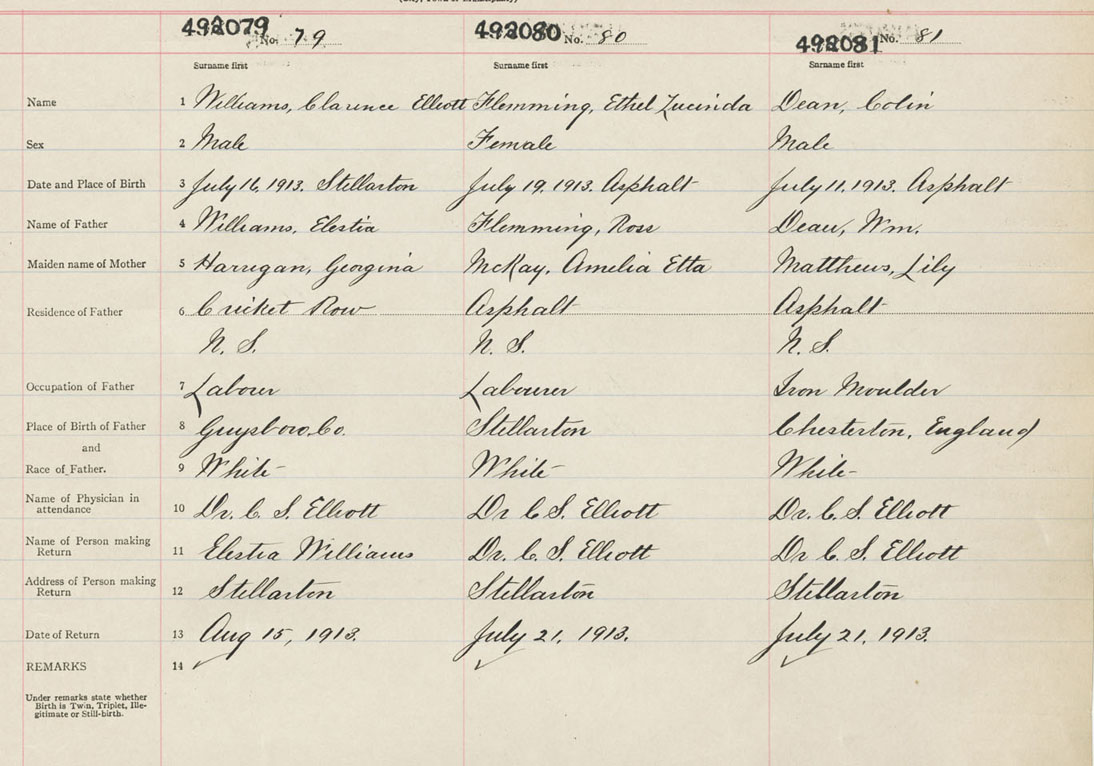 492079 No. 79 492080 No. 80 492081 No. 81
Surname first Surname first Surname first
Name 1 Williams, Clarence Elliott Flemming, Ethel Lucinda Dean, Colin
Sex 2 Male Female Male
Date and Place of Birth 3 July 16, 1913. Stellarton July 19, 1913. Asphalt July 11, 1913. Asphalt
Name of Father 4 Williams, Elestia Flemming, Ross Dean, Wm.
Maiden name of Mother 5 Harrigan, Georgina McKay, Amelia Etta Matthews, Lily
Residence of Father 6 Cricket Row Asphalt Asphalt
N. S. N. S. N. S.
Occupation of Father 7 Labour Labourer Iron Moulder
Place of Birth of Father 8 Guysboro Co. Stellarton Chesterton, England
and
Race of Father. 9 White White White
Name of Physician in
attendance 10 Dr. C. S. Elliott Dr C S. Elliott Dr. C. S. Elliott
Name of Person making
Return 11 Elestia Williams Dr. C. S. Elliott Dr C. S. Elliott
Address of Person making
Return 12 Stellarton Stellarton Stellarton
Date of Return 13 Aug 15, 1913. July 21, 1913. July 21, 1913.
REMARKS 14
Under remarks state whether
Birth is Twin, Triplet, Ille-
gitimate or Still-birth.